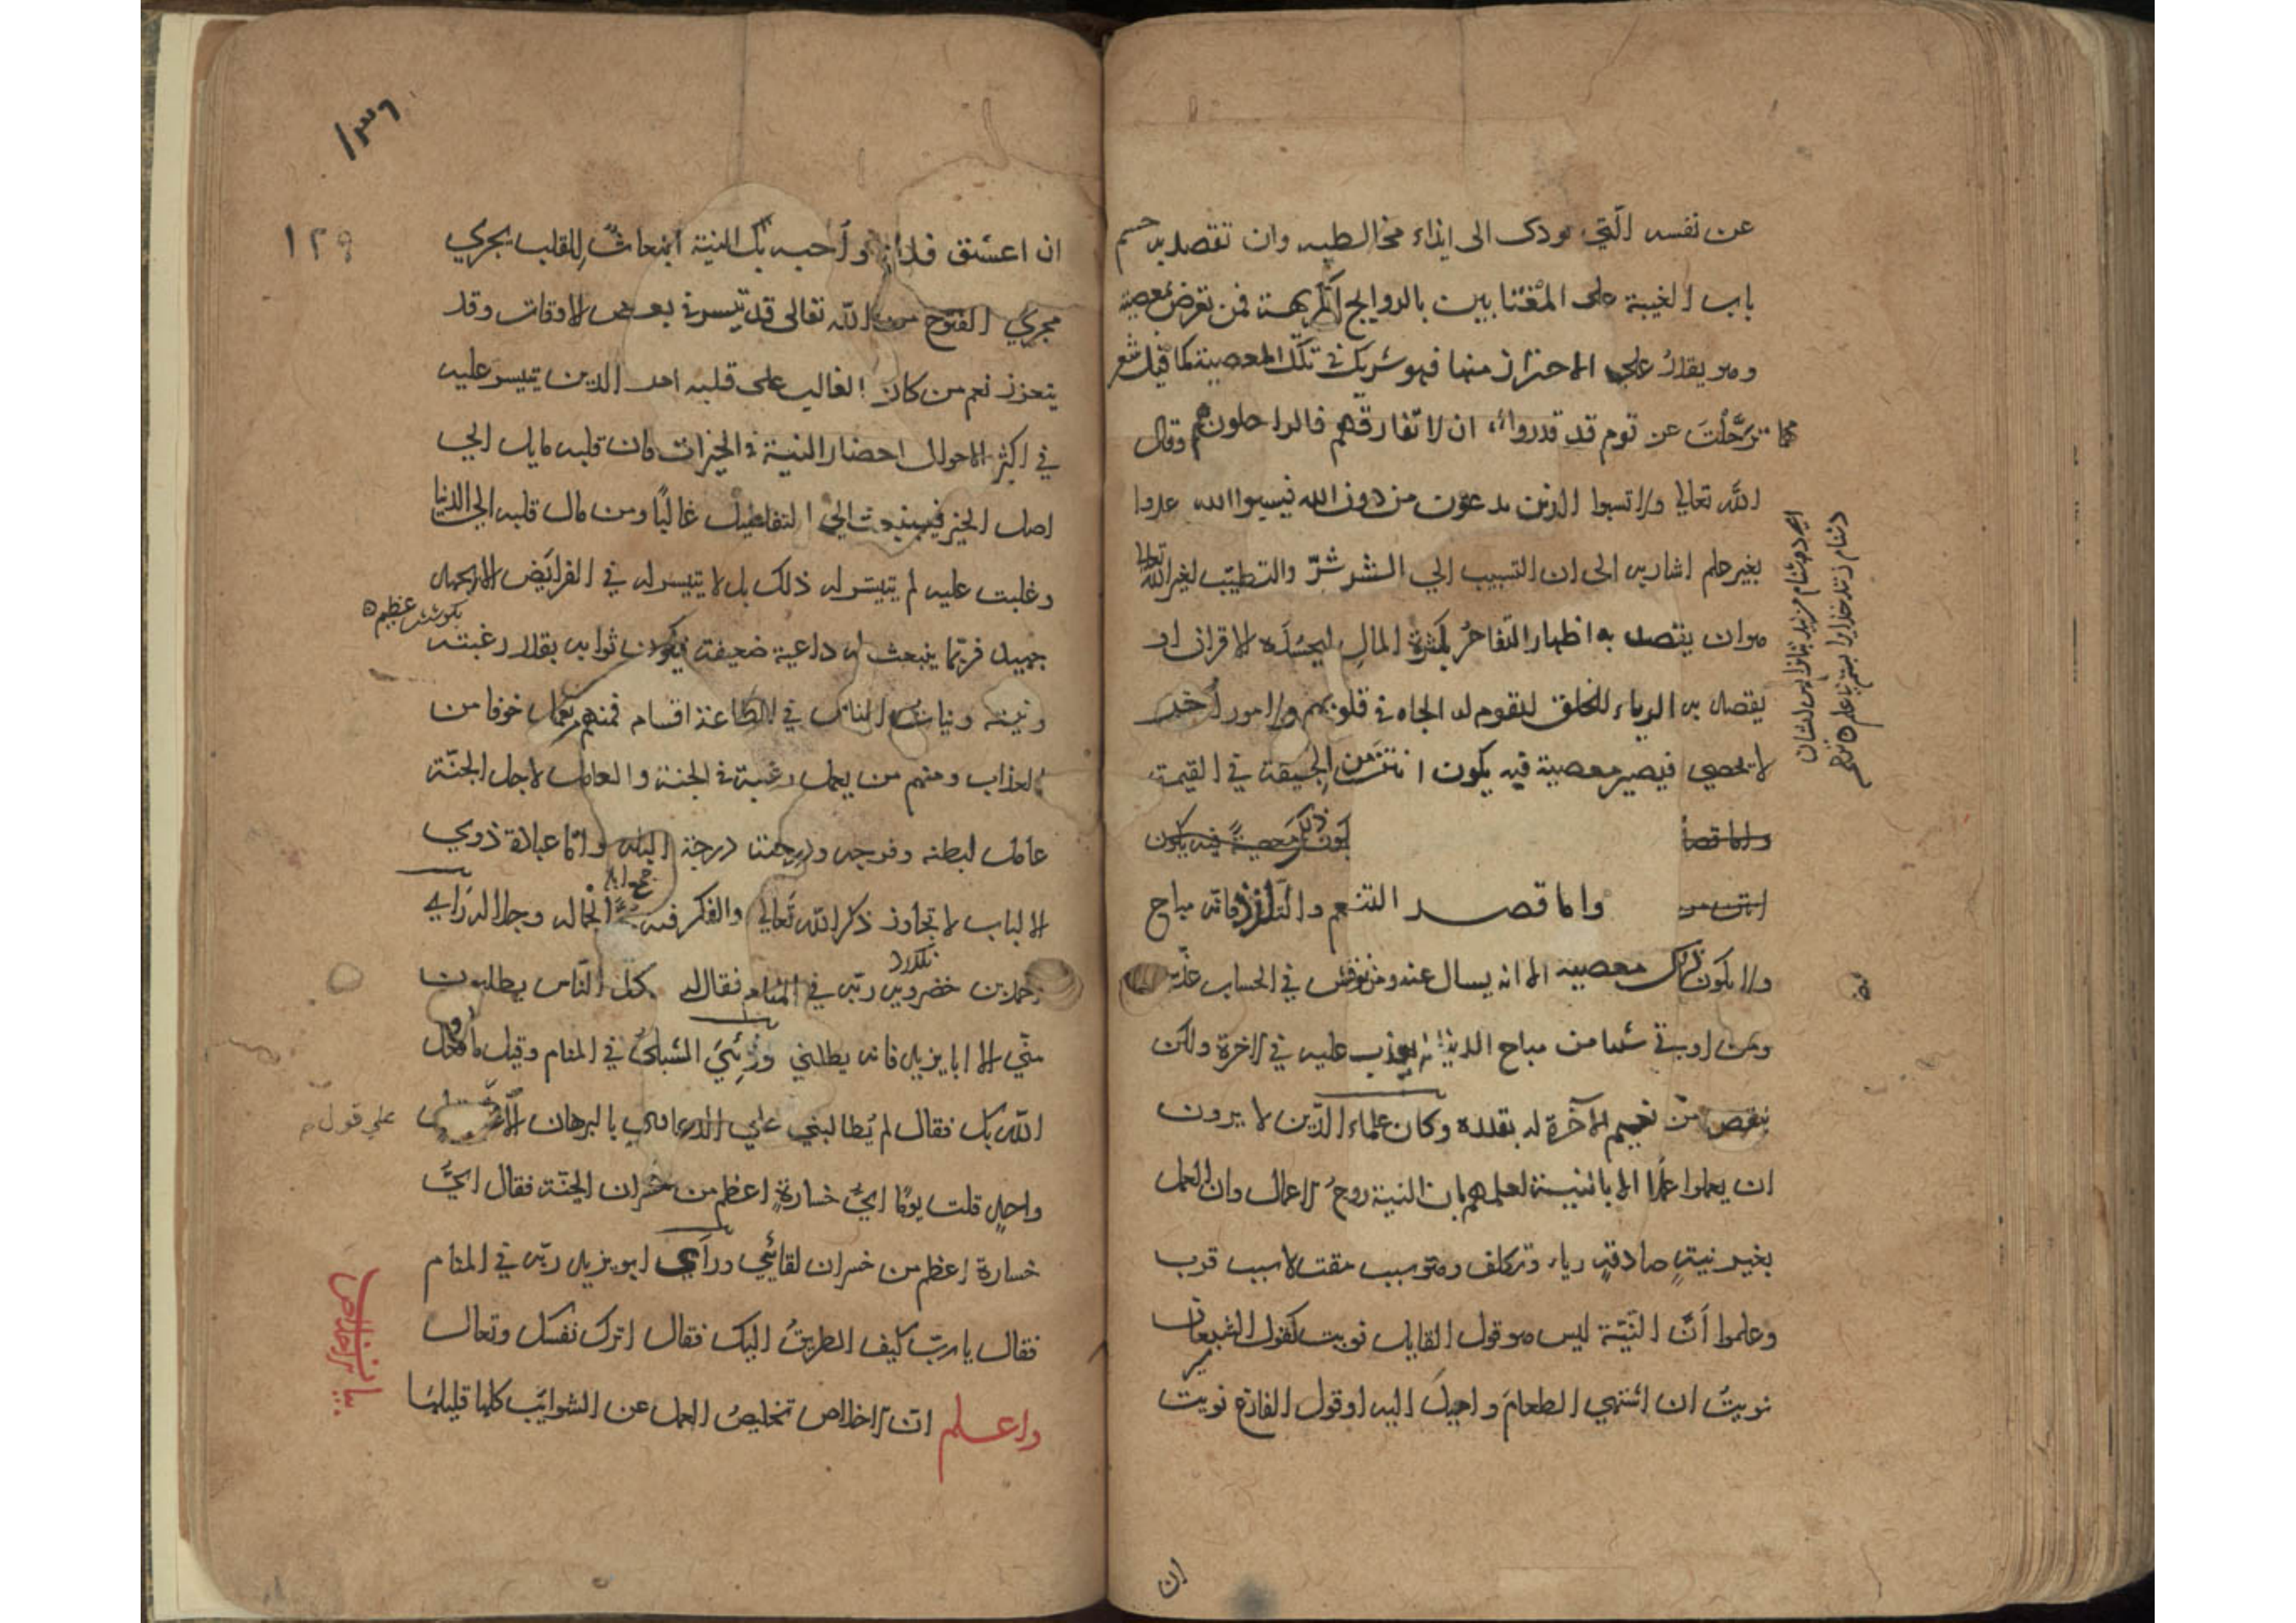 عن نفسه الّتي تودى الى ايذاء مخالطيه وان تقصد به حسم
باب الغيبة على المغتابين بالروايح الكريهة فمن تعرض لمعصية
وهو يقدر علي الاحتراز منها فهو شريك في تلك المعصية كما قيل شعر
ترحّلت عن قوم قد قدروا ان لا تفارقهم فالراحلون هم وقال
اللّه تعالي ولا تسبوا الذين يدعون من دون الله فيسبوا الله عدوا
بغير علم اشار به الى ان التسبيب الي الشر شرّ والتطيّب لغير اللّه تعالى
هو ان يقصد به اظهار التفاخر بكثرة المال ليحسده الاقران او
يقصد به الرياء للخلق لتقوم له الجاه في قلوبهم ولامور أخر
لا تحصي فيصير معصية فيه يكون انتن من الجيفة في القيمة
واما قصد التنعم والتلذذ فانّه مباح
ولا يكون ذلك معصية الا انه يسال عنه ومن نوقش في الحساب عذّب
ومن اوتي شيئا من مباح الدنيا لم يعذب عليه في الاخرة ولكن
ينقص من نعيم الآخرة له بقدره وكان علماء الدّين لا يرون
ان يعملوا عملًا الا بالنيّة لعلمهم بان النية روح الاعمال وان العمل
بغير نيةٍ صادقةٍ رياء وتكلف وهو سبب مقت لا سبب قرب
وعلموا أنّ النّيّة ليس هو قول القايل نويت كقول الشبعان
نويتُ ان اشتهي الطعامَ واميلَ اليه او قول الفارغ نويت
ان
١٣٦
١٢٩
ان اعشق فلانا وأحبه بل النية انبعاث للقلب يجري
مجري الفتوح من اللّه تعالى قد تيسر في بعض الاوقات وقد
يتعزز نعم من كان الغالب على قلبه امر الدين تيسر عليه
في اكثر الاحوال احضار النية في الخيرات فان قلبه مايل الي
اصل الخير فينبعث الي التفاصيل غالبًا ومن مال قلبه الي الدنيا
وغلبت عليه لم يتيسر له ذلك بل لا تيسر له في الفرائض الا بجهد
بكوشش عظيم
جهيد فربّما ينبعث له داعية ضعيفة فيكون ثوابه بقدر رغبته
ونيته ونيات الناس في الطاعة اقسام فمنهم من يعمل خوفا من
العذاب ومنهم من يعمل رغبة في الجنة والعامل لاجل الجنّة
عامل لبطنه وفرجه ودرجته درجة البله وامّا عبادة ذوي
الالباب لا تجاوز ذكر اللّه تعالي والفكر فيه حبًّا لجماله وجلاله رأي
احمد بن خضرويه ربّه في المنام فقال له كل النّاس يطلبون
منّي الا ابا يزيد فانه يطلبني ورُئيَ الشبلي في المنام وقيل ما فعل
اللّه بك فقال لم يُطالبني علي الدعاوي بالبرهان الا
على قول
واحدٍ قلت يومًا ايّ خسارةٍ اعظم من خسران الجنّة فقال ايّ
خسارة اعظم من خسران لقائي ورأي ابو يزيد ربّه في المنام
فقال يا ربّ كيف الطريق اليك فقال اترك نفسك وتعال
واعلم ان الاخلاص تخليص العمل عن الشوائب كلها قليلها
بيان الاخلاص